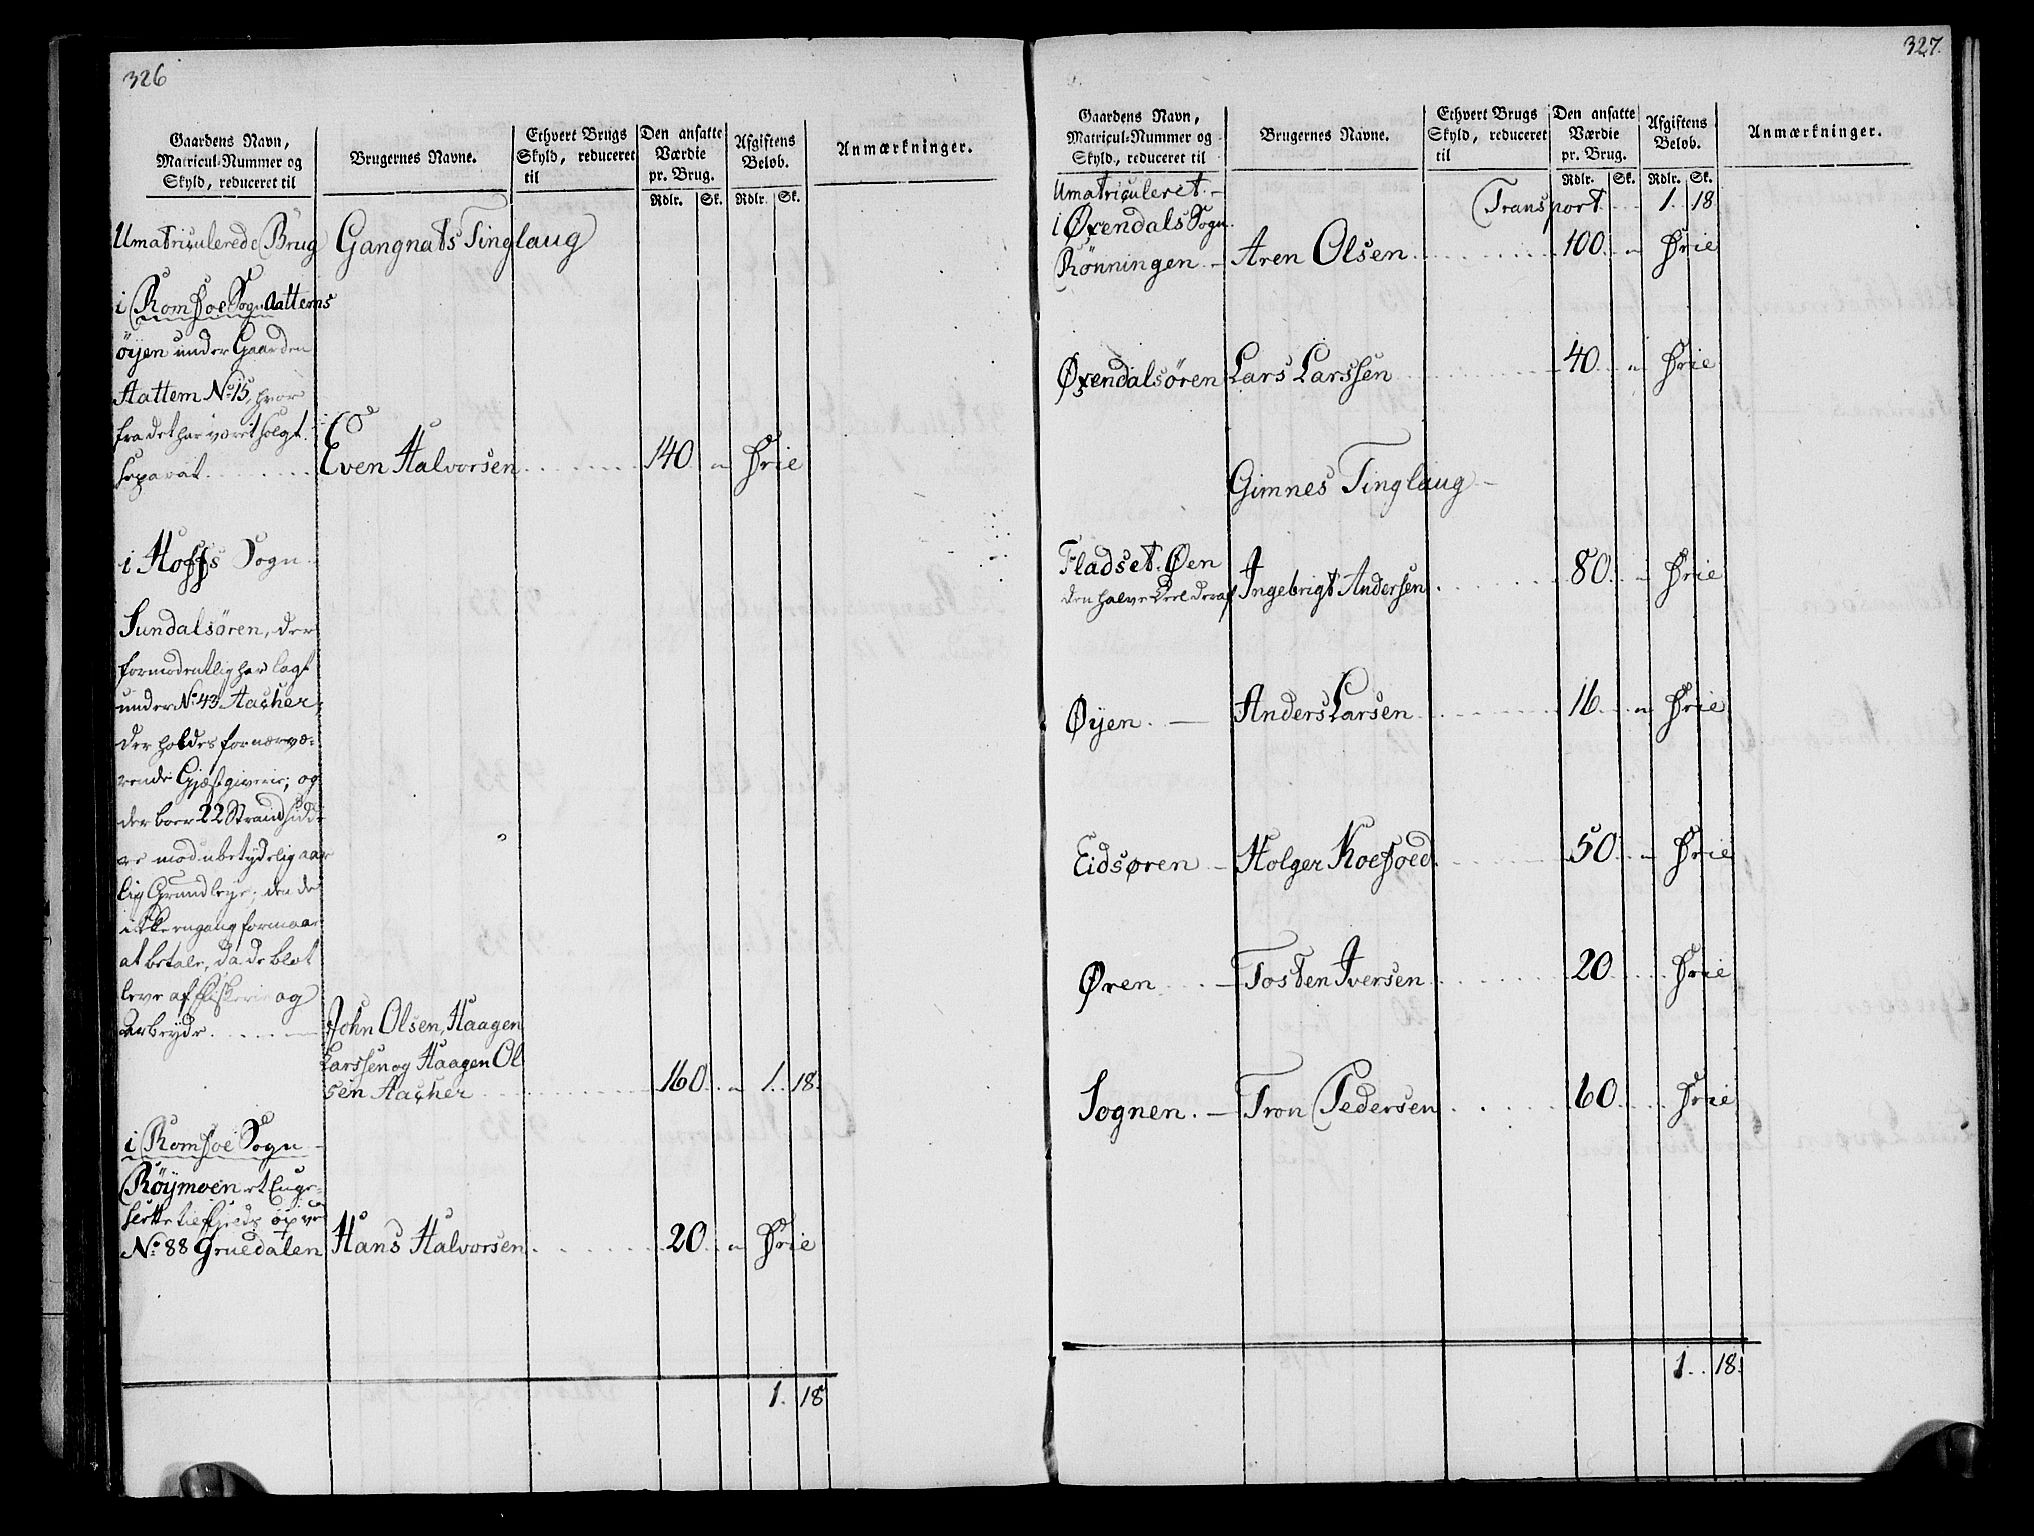 326
Gaardens Navn,
Matricul-Nummer og
Skyld, reduceret til
Brugernes Navne.
Ethvert Brugs
Skyld, reduceret
til
Den ansatte
Værdie
pr. Brug.
Rdlr. Sk.
Afgiftens
Beløb.
Rdlr. Sk.
Anmærkninger.
Umatriculerede Brug Gangnats Tinglaug
i Romsoe Sogn Aattems
öyen under Gaarden
Aattem No 15, hvor
fra det har været solgt
separat
Even Halvorsen 140 " Frie
i Hoffs Sogn
Sundalsören, der
formodentlig har lagt
under No 43 Aacher,
der holdes for nærvæ-
rende Gjæstgiverie; og
der boer 22 Strandsidd-
re mod ubetydelig aar
lig Grundleye, den de
ikke engang formaar
at betale, da de blot
leve af Fiskerie og
arbeyde
John Olsen, Haagen
Larssen og Haagen Ol
sen Aacher 160 " 1. 18.
i Romsoe Sogn
Röymoen et Enge-
No 88 Gruedalen Hans Halvorsen 20 " Frie
1. 18
327.
Gaardens Navn,
Matricul-Nummer og
Skyld, reduceret til
Brugernes Navne.
Ethvert Brugs
Skyld, reduceret
til
Den ansatte
Værdie
pr. Brug.
Rdlr. Sk.
Afgiftens
Beløb.
Rdlr. Sk.
Anmærkninger.
Umatriculeret Transport 1. 18
i Øxendals Sogn
Rönningen Aren Olsen 100 " Frie
Øxendalsören Lars Larssen 40 " Frie
Gimnes Tinglaug
Fladset-Øen
den halve Deel deraf Ingebrigt Andersen 80 " Frie
Øyen Anders Larsen 16 " Frie
Eidsøren Holger Koefoed 50 " Frie
Øren Tosten Iversen 20 Frie
Sognen Tron Pedersen 60 Frie
1. 18.